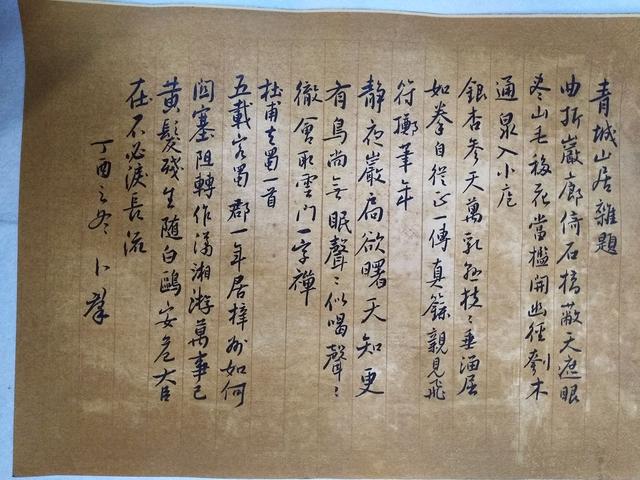 青城山居雜題
曲折巖廊倚石橋蔽天遮眼
冬山毛移花當檻開幽徑刳木
通泉入小庖
銀杏參天萬乳垂枝〻垂湎屈
如拳自從正一傳真籙親見飛
符擲筆年
靜夜巖扃欲曙天知更
有鳥尚無眠聲〻似喝聲〻
徹會取雲門一字禪
杜甫去蜀一首
五載客蜀郡一年居梓州如何
関塞阻轉作瀟湘游萬事已
黄髮殘生隨白鷗安危大臣
在不必淚長流
丁酉之冬